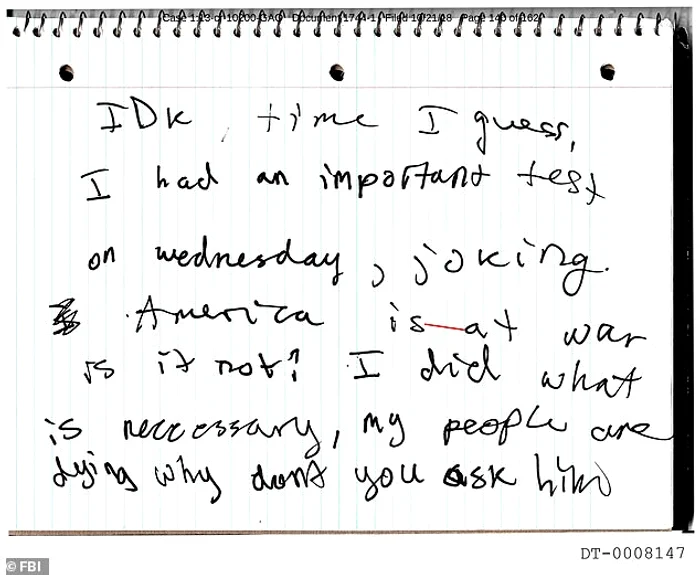 Case 1:13-cr-10200-GAO Document 1744-1 Filed 10/21/18 Page 140 of 162
IDK, time I guess,
I had an important test
on wednesday, joking.
America is at war
is it not? I did what
is neccessary, my people are
dying why dont you ask him
DT-0008147
© FBI